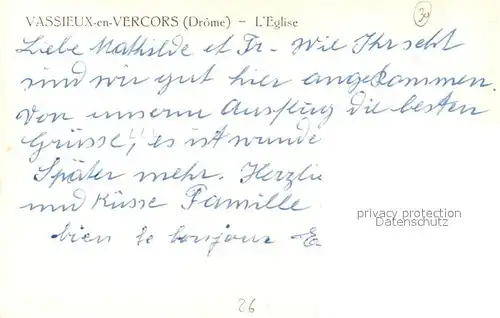 VASSIEUX-en-VERCORS (Drôme) - L'Eglise
30
Liebe Mathilde et Fr. Wie Ihr seht
sind wir gut hier angekommen.
Von unserm Ausflug die besten
Grüsse, es ist wunde
Später mehr. Herzli
und Küsse Famille
bien le bonjour E
privacy protection
Datenschutz
26